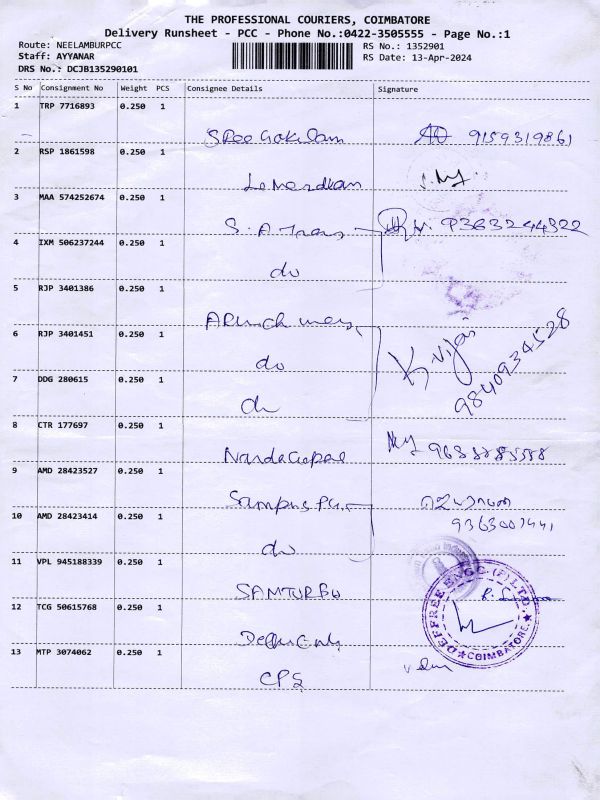 THE PROFESSIONAL COURIERS, COIMBATORE
Delivery Runsheet - PCC - Phone No.:0422-3505555 - Page No.:1
Route: NEELAMBURPCC
RS No.: 1352901
Staff: AYYANAR
RS Date: 13-Apr-2024
DRS No.: DCJB135290101
S No Consignment No Weight PCS Consignee Details Signature
1 TRP 7716893 0.250 1
Sree Gokulam 9159319861
2 RSP 1861598 0.250 1
3 MAA 574252674 0.250 1
S. A Trans 9363244322
4 IXM 506237244 0.250 1
do
5 RJP 3401386 0.250 1
6 RJP 3401451 0.250 1
do K. Vijai 9840934528
7 DDG 280615 0.250 1
do
8 CTR 177697 0.250 1
NandaGopal
9 AMD 28423527 0.250 1
10 AMD 28423414 0.250 1
do
11 VPL 945188339 0.250 1
SAMTURBO
12 TCG 50615768 0.250 1
DEFFREE ENGG. (P) LTD. COIMBATORE.
13 MTP 3074062 0.250 1
CPS